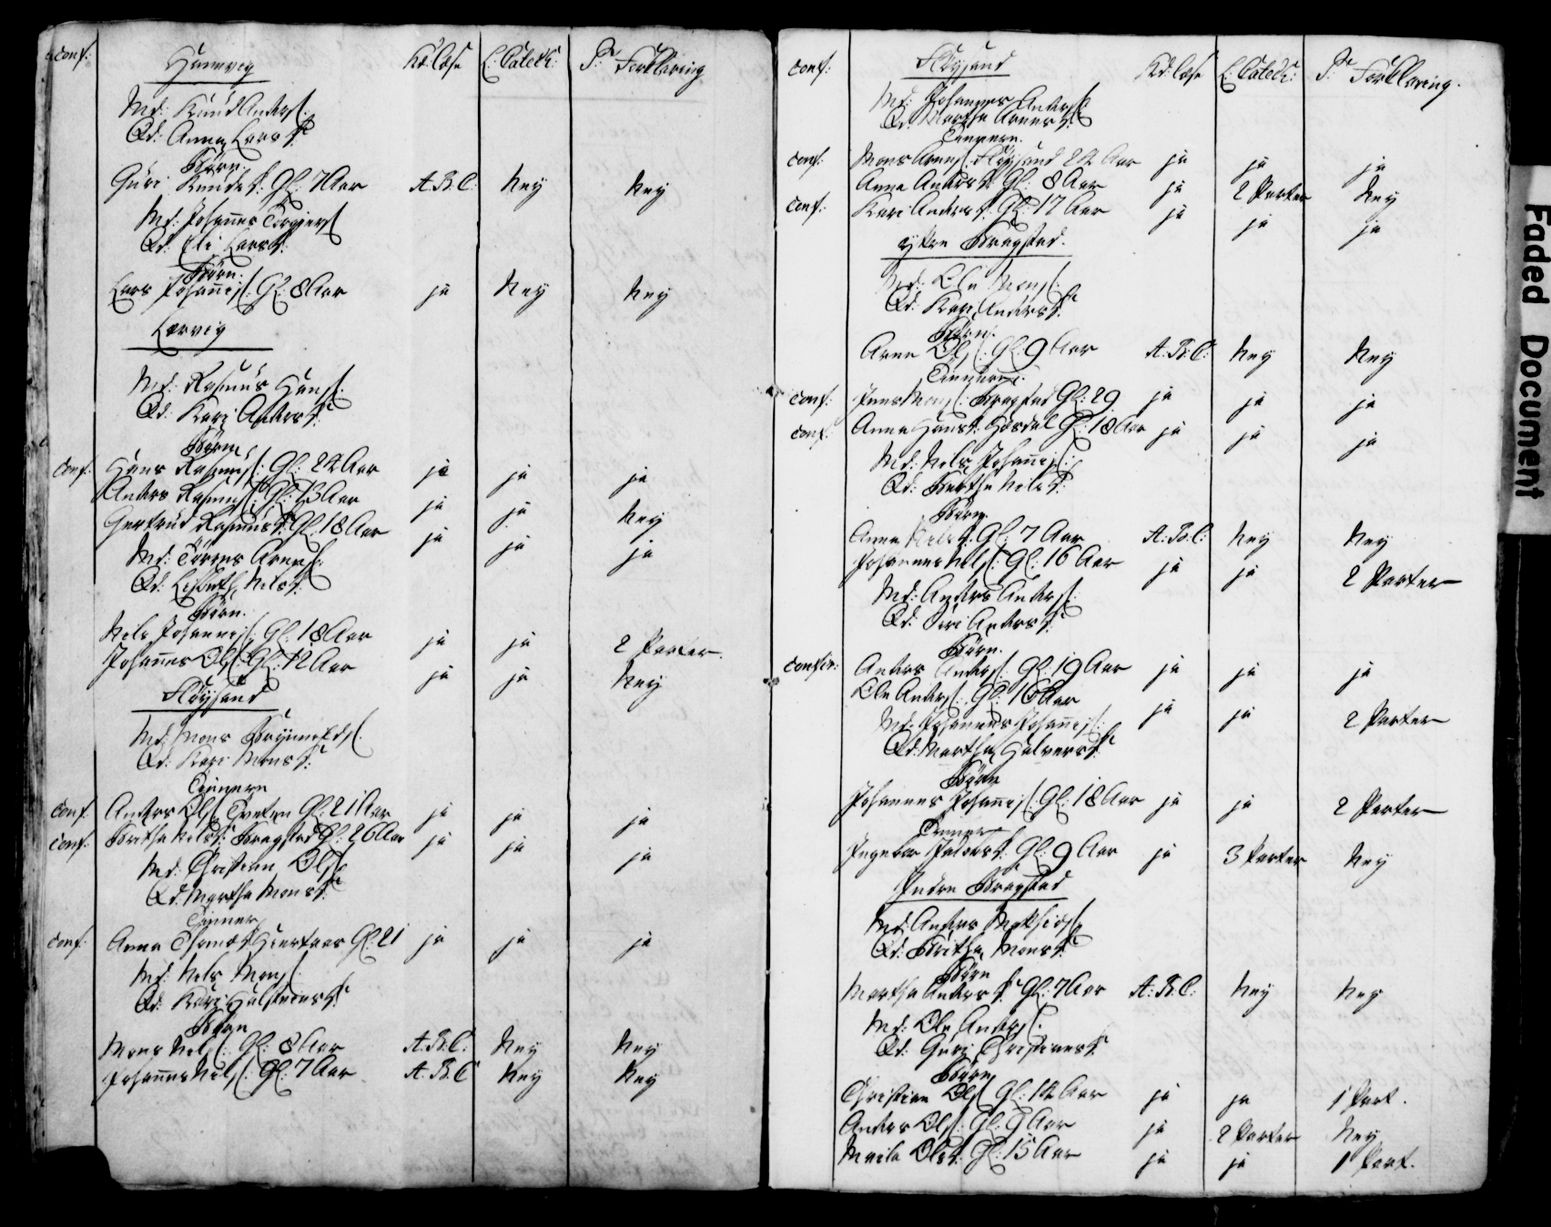 conf: Hannevig Kd: Læse L: Catech: P: Forklaring
Md: Knud Anders:
Qd: Anna Lars D:
Børn
Guri Knuds D: Gl: 7 Aar A.B.C. Ney Ney
Md: Johannes
Qd: Eli Lars D:
Børn.
Lars Johannes: Gl: 8 Aar ja Ney Ney
Lervig
Md: Rasmus Hans:
Qd: Kari Anders D:
Børn
Conf: Hans Rasmus: Gl: 22 Aar ja ja ja
Anders Rasmus: Gl: 13 Aar ja ja Ney
Gertrud Rasmus D: Gl: 18 Aar ja ja ja
Md: Arnes:
Qd: Nels D:
Børn.
Nels Johannes: Gl: 18 Aar ja ja 2 Parter
Johannes Ols: Gl: 12 Aar ja ja Ney
Fløysand
Md: Mons Brynnilds:
Qd: Kari Mons D:
Tiennere
Conf Anders Ols: Gl: 21 Aar ja ja ja
Conf: Britha Nels D: Bragstad Gl: 26 Aar ja ja ja
Md: Christian Ols:
Qd: Martha Mons D:
Tienner
Conf: Anna Gl: 21 ja ja ja
Md: Nels Mons:
Qd: Kari
Børn
Mons Nels: Gl: 8 Aar A.B.C: Ney Ney
Johannes Nels: Gl: 7 Aar A.B.C Ney Ney
conf: Fløysand Kd: Læse L: Catech: P: Forklaring.
Md: Johannes Anders:
Qd: Martha Arnes D:
Tiennere.
Conf: Mons Arnes: Fløysand 22 Aar ja ja ja
Anna Anders D: Gl: 8 Aar ja 2 Parter Ney
Conf: Kari Anders D: Gl: 17 Aar ja ja ja
ytre Bragstad.
Md: Ole Mons:
Qd: Kari Anders D:
Børn.
Arne Ols: Gl: 9 Aar A.B.C: Ney Ney
Tiennere.
Conf: Mons: Bragstad Gl: 29 ja ja ja
Conf: Anna Hans D: Gl: 18 Aar ja ja ja
Md: Nels Johannes:
Qd: Martha Nels D:
Børn.
Anna Nels D: Gl: 7 Aar A.B.C: Ney Ney
Johannes Nels: Gl: 16 Aar ja ja 2 Parter
Md: Anders Anders:
Qd: Siri Anders D:
Børn.
Confir: Anders Anders: Gl: 19 Aar ja ja ja
Ole Anders: Gl: 16 Aar ja ja 2 Parter
Md: Johannes Johannes:
Qd: Martha Halvers D:
Børn
Johannes Johannes: Gl: 18 Aar ja ja 2 Parter
Tienner
Ingebor Peders D: Gl: 9 Aar ja 3 Parter Ney
Indre Bragstad
Md: Anders
Qd: Britha Mons D:
Børn
Martha Anders D: Gl: 7 Aar A.B.C: Ney Ney
Md: Ole Anders:
Qd: Guri Christians D:
Børn
Christian Ols: Gl: 12 Aar ja ja 1 Part.
Anders Ols: Gl: 9 Aar ja 2 Parter Ney
Marta Ols D: Gl: 15 Aar ja ja 1 Part.
Faded Document